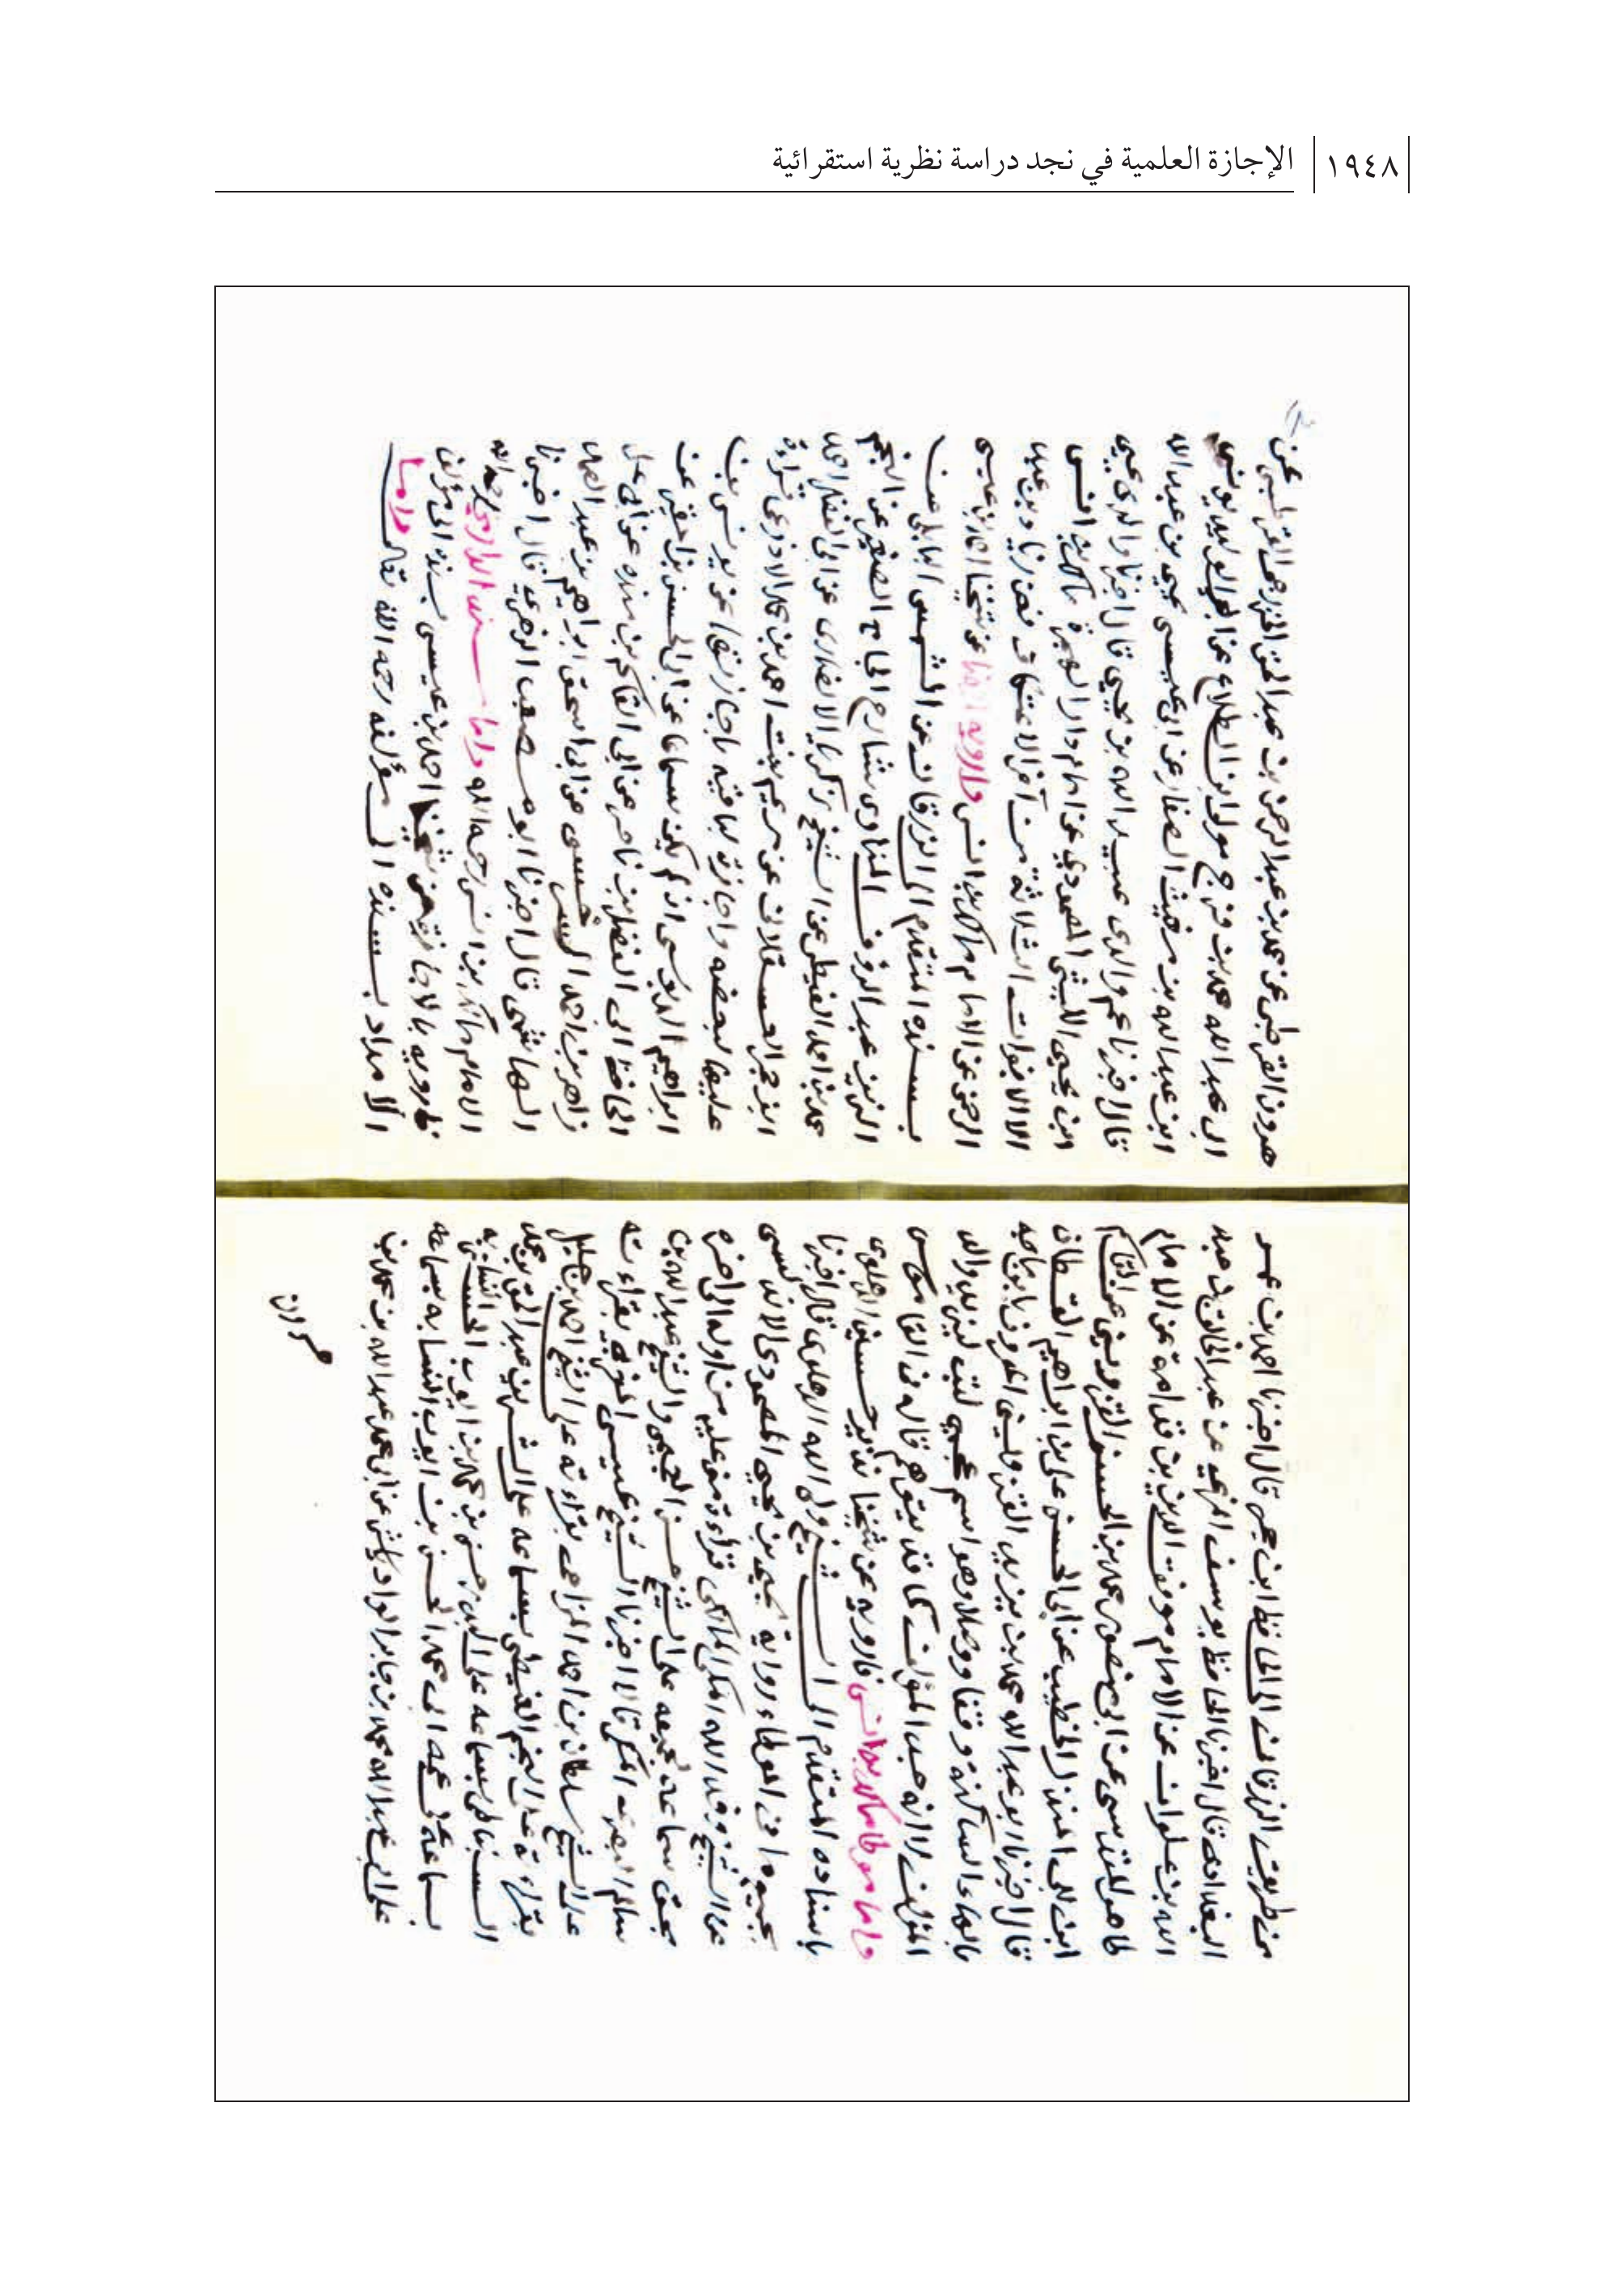 ١٩٤٨
الإجازة العلمية في نجد دراسة نظرية استقرائية
من طريق الزرقاني الى الحافظ ابن حجر قال اخبرنا احمد بن عمر
البغدادي قال اخبرنا الحافظ يوسف المزي عن عبد الخالق بن عبد
الله بن علوان عن الامام موفق الدين بن قدامة عن الامام
طاهر المقدسي عن ابي منصور محمد بن الحسن القزويني عن القاسم
ابن ابي المنذر الخطيب عن ابي الحسن علي بن ابراهيم القطان
قال اخبرنا ابو عبد الله محمد بن يزيد القزويني المعروف بابن ماجه
بالهاء الساكنة وقفا ووصلا وهو اسم عجمي لقب ليزيد والد
المؤلف لا انه جد المؤلف كما قد يتوهم قاله في القاموس
واما موطا مالك بن انس فارويه عن شيخنا نذير حسين الدهلوي
باسناده المتقدم الى الشيخ ولي الله الدهلوي قال اخبرنا
بجميع ما في الموطاء رواية يحيى بن يحيى المصمودي الاندلسي
عن الشيخ وفد الله المكي المالكي قراءة مني عليه من اوله الى اخره
بحق سماعه لجميعه على الشيخ حسن العجيمي والشيخ عبد الله بن
سالم البصري المكي قالا اخبرنا الشيخ عيسى المغربي بقراءته
على الشيخ سلطان بن احمد المزاحي بقراءته على الشيخ احمد بن خليل
بقراءته على النجم الغيطي بسماعه على الشرف عبد الحق بن محمد
السنباطي بسماعه على البدر حسن بن محمد بن ايوب الحسيني النسابه
بسماعه على عمه ابي محمد الحسن بن ايوب النسابه بسماعه
على ابي عبد الله محمد بن جابر الوادياشي عن ابي محمد عبد الله بن محمد بن
هرون
هرون القرطبي عن محمد بن عبد الرحمن بن عبد الحق الخزرجي القرطبي عن
ابي عبد الله محمد بن فرج مولى ابن الطلاع عن ابي الوليد يونس
ابن عبد الله بن مغيث الصفار عن ابي عيسى يحيى بن عبد الله
قال اخبرنا عم والدي عبيد الله بن يحيى قال اخبرنا والدي يحيى
ابن يحيى الليثي المصمودي عن امام دار الهجرة مالك بن انس
الا الابواب الثلاثة من آخر الاعتكاف فعن زياد بن عبد
الرحمن عن الامام مالك بن انس وارويه ايضا عن شيخنا احمد بن عيسى
بسنده المتقدم الى الزرقاني عن الشمس البابلي عن
الزين عبد الرؤف المناوي شارح الجامع الصغير عن النجم
محمد بن احمد الغيطي عن الشيخ زكريا الانصاري عن ابي الفضل احمد
ابن حجر العسقلاني عن مريم بنت احمد بن محمد الاذرعي قراءة
عليها لبعضه واجازة لباقيه باجازتها عن يونس بن
ابراهيم الدبوسي ان لم يكن سماعا عن ابي الحسن بن المقير عن
الحافظ ابي الفضل بن ناصر عن ابي القاسم بن منده عن ابي علي
زاهر بن احمد السرخسي عن ابي اسحق ابراهيم بن عبد الصمد
الهاشمي قال اخبرنا ابو مصعب الزهري قال اخبرنا
الامام مالك بن انس رحمه الله واما سند الدارمي رحمه الله
فارويه بالاجازة عن شيخنا احمد بن عيسى بسنده الى مؤلف
الامداد بسنده الى مؤلفه رحمه الله تعالى واما